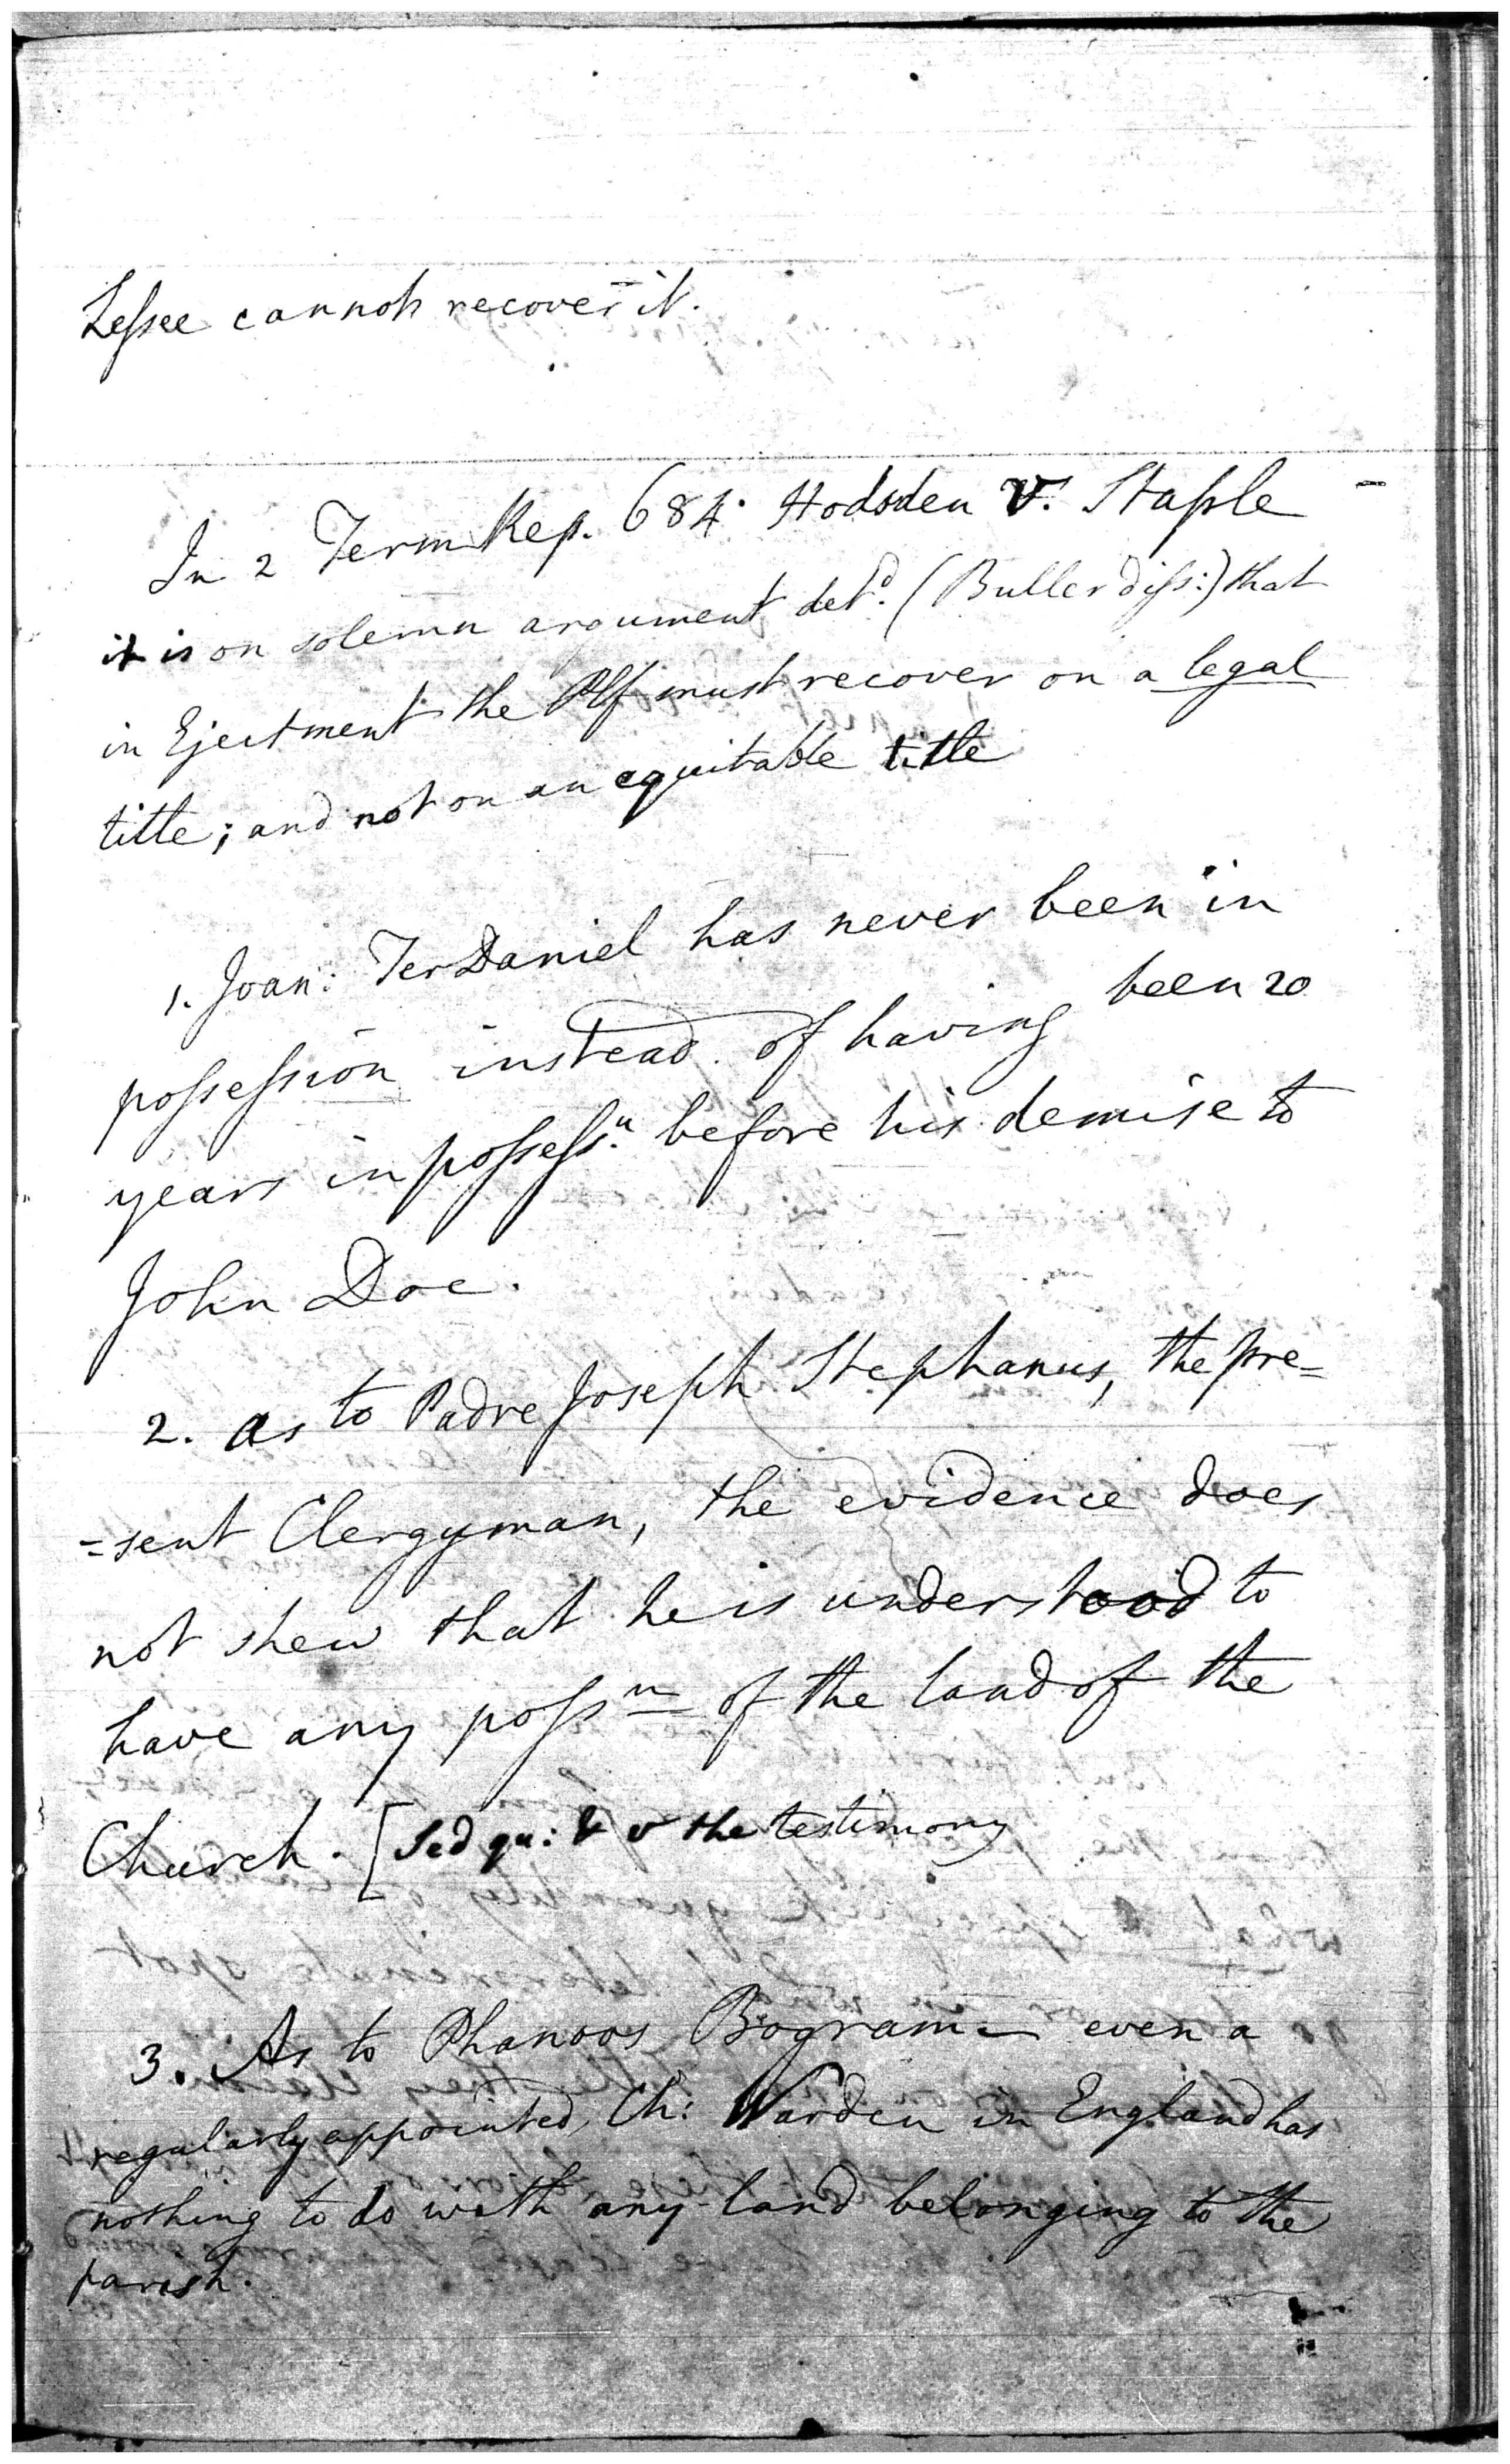 Lessee cannot recover it.
In 2 Term Rep. 684. Hodsden v. Staple -
it is on solemn argument detd. (Buller diss:) that
in Ejectment the Plf must recover on a legal
title; and not on an equitable title
1. Joan: Ter Daniel has never been in
possession instead of having been 20
years in possessn. before his demise to
John Doe.
2. as to Padre Joseph Stephanus, the pre=
=sent Clergyman, the evidence does
not shew that he is understood to
have any possn of the land of the
Church. [Sed qu: & v the testimony
3. As to Phanoos Bogram - even a
regularly appointed Ch: Warden in England has
nothing to do with any land belonging to the
parish.